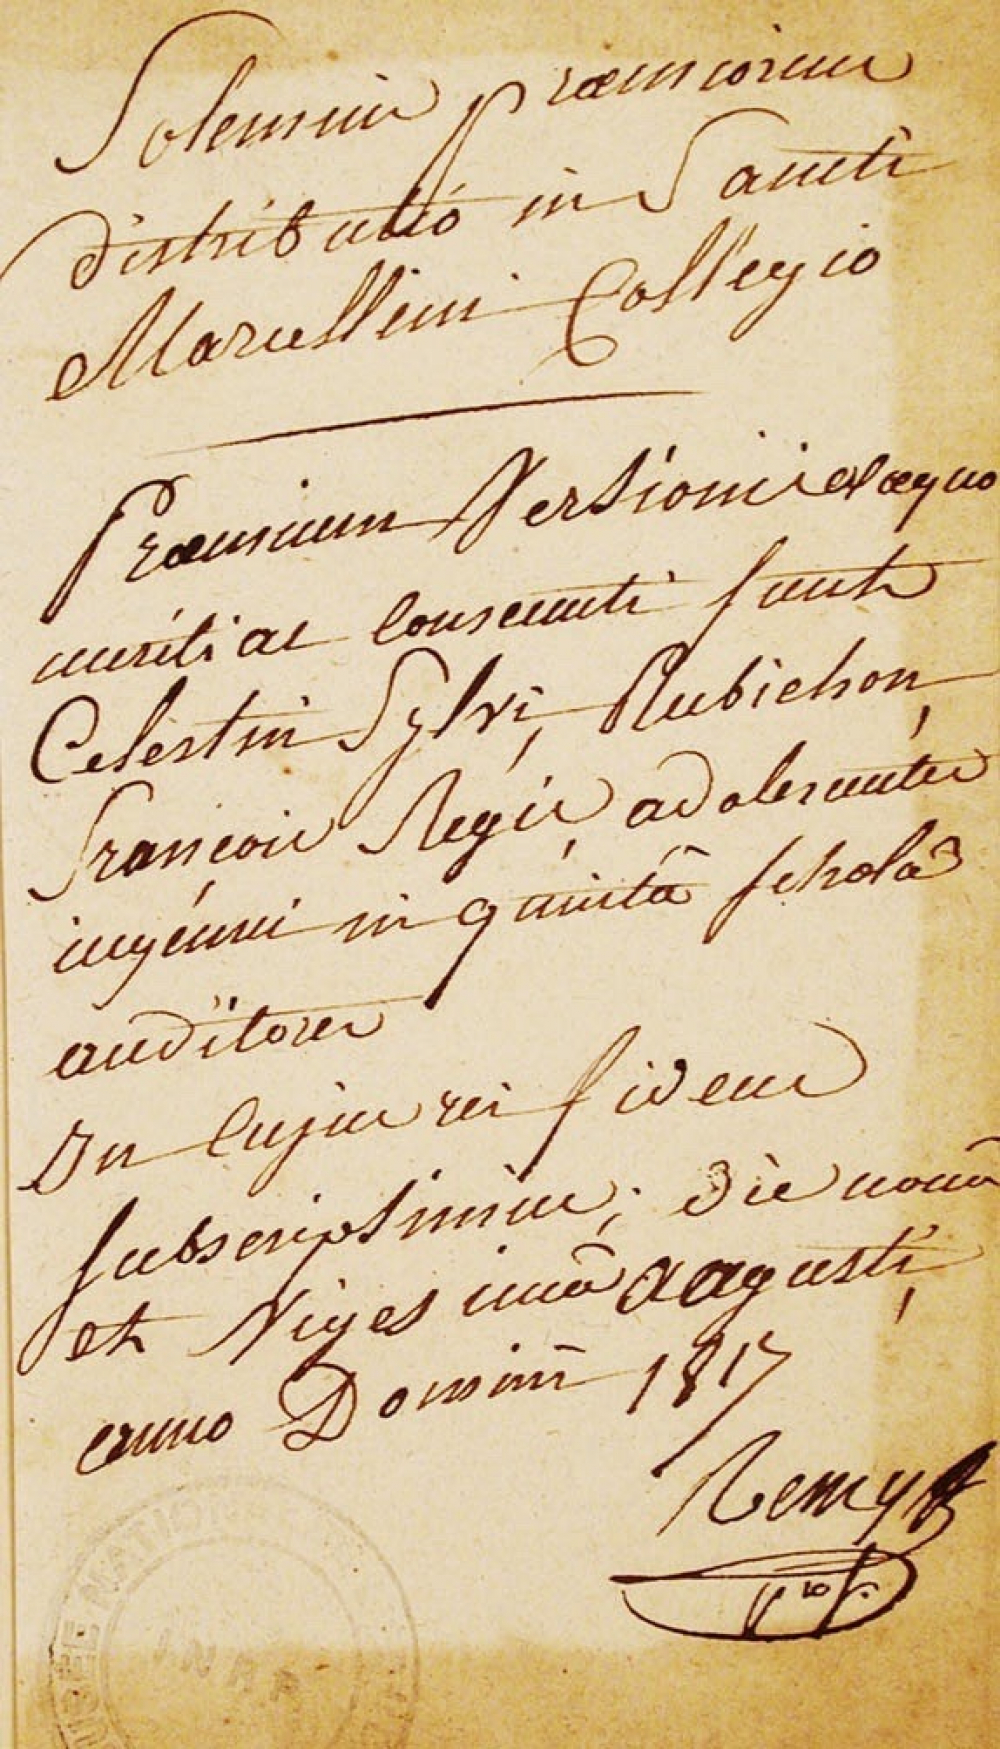 Solemnis præmiorum
distributio in Sancti
Marcellini Collegio
Præmium Versionis ex æquo
meriti ac consecuti sunt
Celestin Sylvi, Rubichon,
François Régis, adolescentes
ingénui in quintâ scholâ
audïtores
In cujus rei fidem
subscripsimus; die nonâ
et vigesimâ augusti,
anno Domini 1817
Remy
MUSÉE NATION
INRP